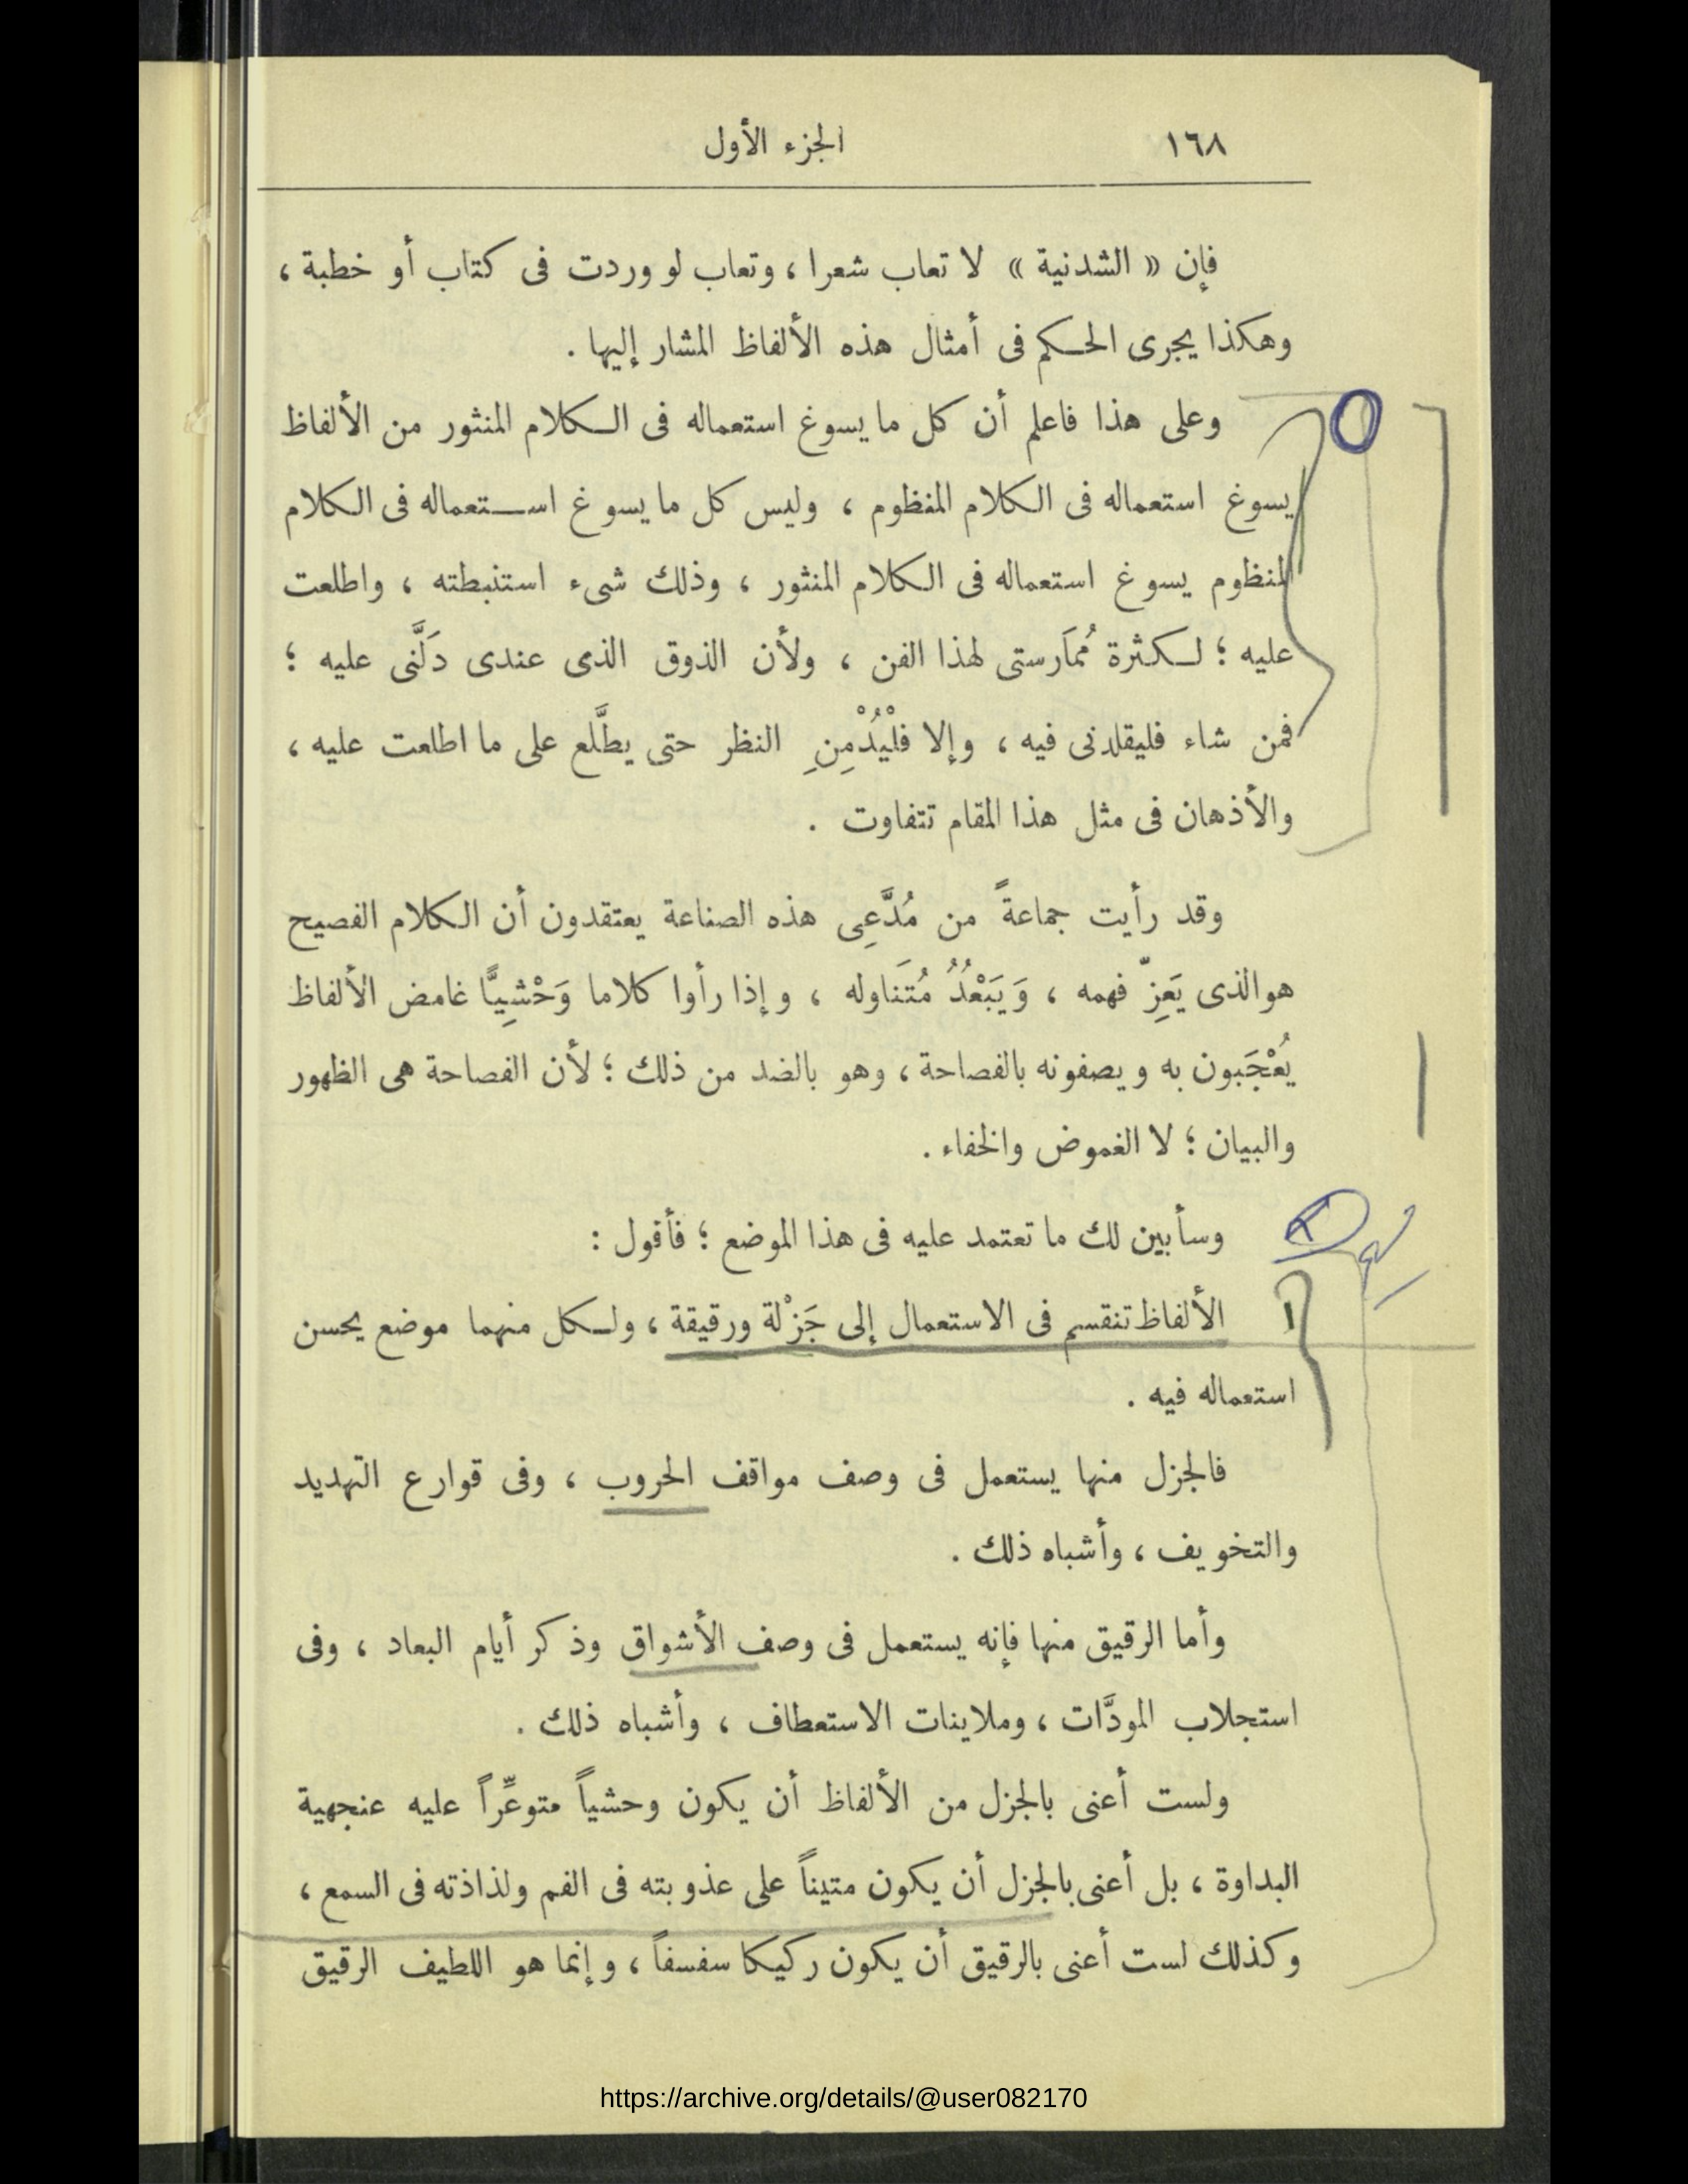 ١٦٨ الجزء الأول
فإن « الشدنية » لا تعاب شعرا ، وتعاب لو وردت فى كتاب أو خطبة ،
وهكذا يجرى الحكم فى أمثال هذه الألفاظ المشار إليها .
وعلى هذا فاعلم أن كل ما يسوغ استعماله فى الكلام المنثور من الألفاظ
يسوغ استعماله فى الكلام المنظوم ، وليس كل ما يسوغ استعماله فى الكلام
المنظوم يسوغ استعماله فى الكلام المنثور ، وذلك شىء استنبطته ، واطلعت
عليه ؛ لكثرة مُمَارستى لهذا الفن ، ولأن الذوق الذى عندى دَلَّنى عليه ؛
فمن شاء فليقلدنى فيه ، وإلا فلْيُدْمِنِ النظر حتى يطَّلع على ما اطلعت عليه ،
والأذهان فى مثل هذا المقام تتفاوت .
وقد رأيت جماعةً من مُدَّعِى هذه الصناعة يعتقدون أن الكلام الفصيح
هو الذى يَعِزّ فهمه ، وَيَبْعُدُ مُتَنَاوله ، وإذا رأوا كلاما وَحْشِيًّا غامض الألفاظ
يُعْجَبون به ويصفونه بالفصاحة ، وهو بالضد من ذلك ؛ لأن الفصاحة هى الظهور
والبيان ؛ لا الغموض والخفاء .
وسأبين لك ما تعتمد عليه فى هذا الموضع ؛ فأقول :
الألفاظ تنقسم فى الاستعمال إلى جَزْلة ورقيقة ، ولكل منهما موضع يحسن
استعماله فيه .
فالجزل منها يستعمل فى وصف مواقف الحروب ، وفى قوارع التهديد
والتخويف ، وأشباه ذلك .
وأما الرقيق منها فإنه يستعمل فى وصف الأشواق وذكر أيام البعاد ، وفى
استجلاب المودَّات ، وملاينات الاستعطاف ، وأشباه ذلك .
ولست أعنى بالجزل من الألفاظ أن يكون وحشياً متوعِّراً عليه عنجهية
البداوة ، بل أعنى بالجزل أن يكون متيناً على عذوبته فى الفم ولذاذته فى السمع ،
وكذلك لست أعنى بالرقيق أن يكون ركيكا سفسفاً ، وإنما هو اللطيف الرقيق
https://archive.org/details/@user082170